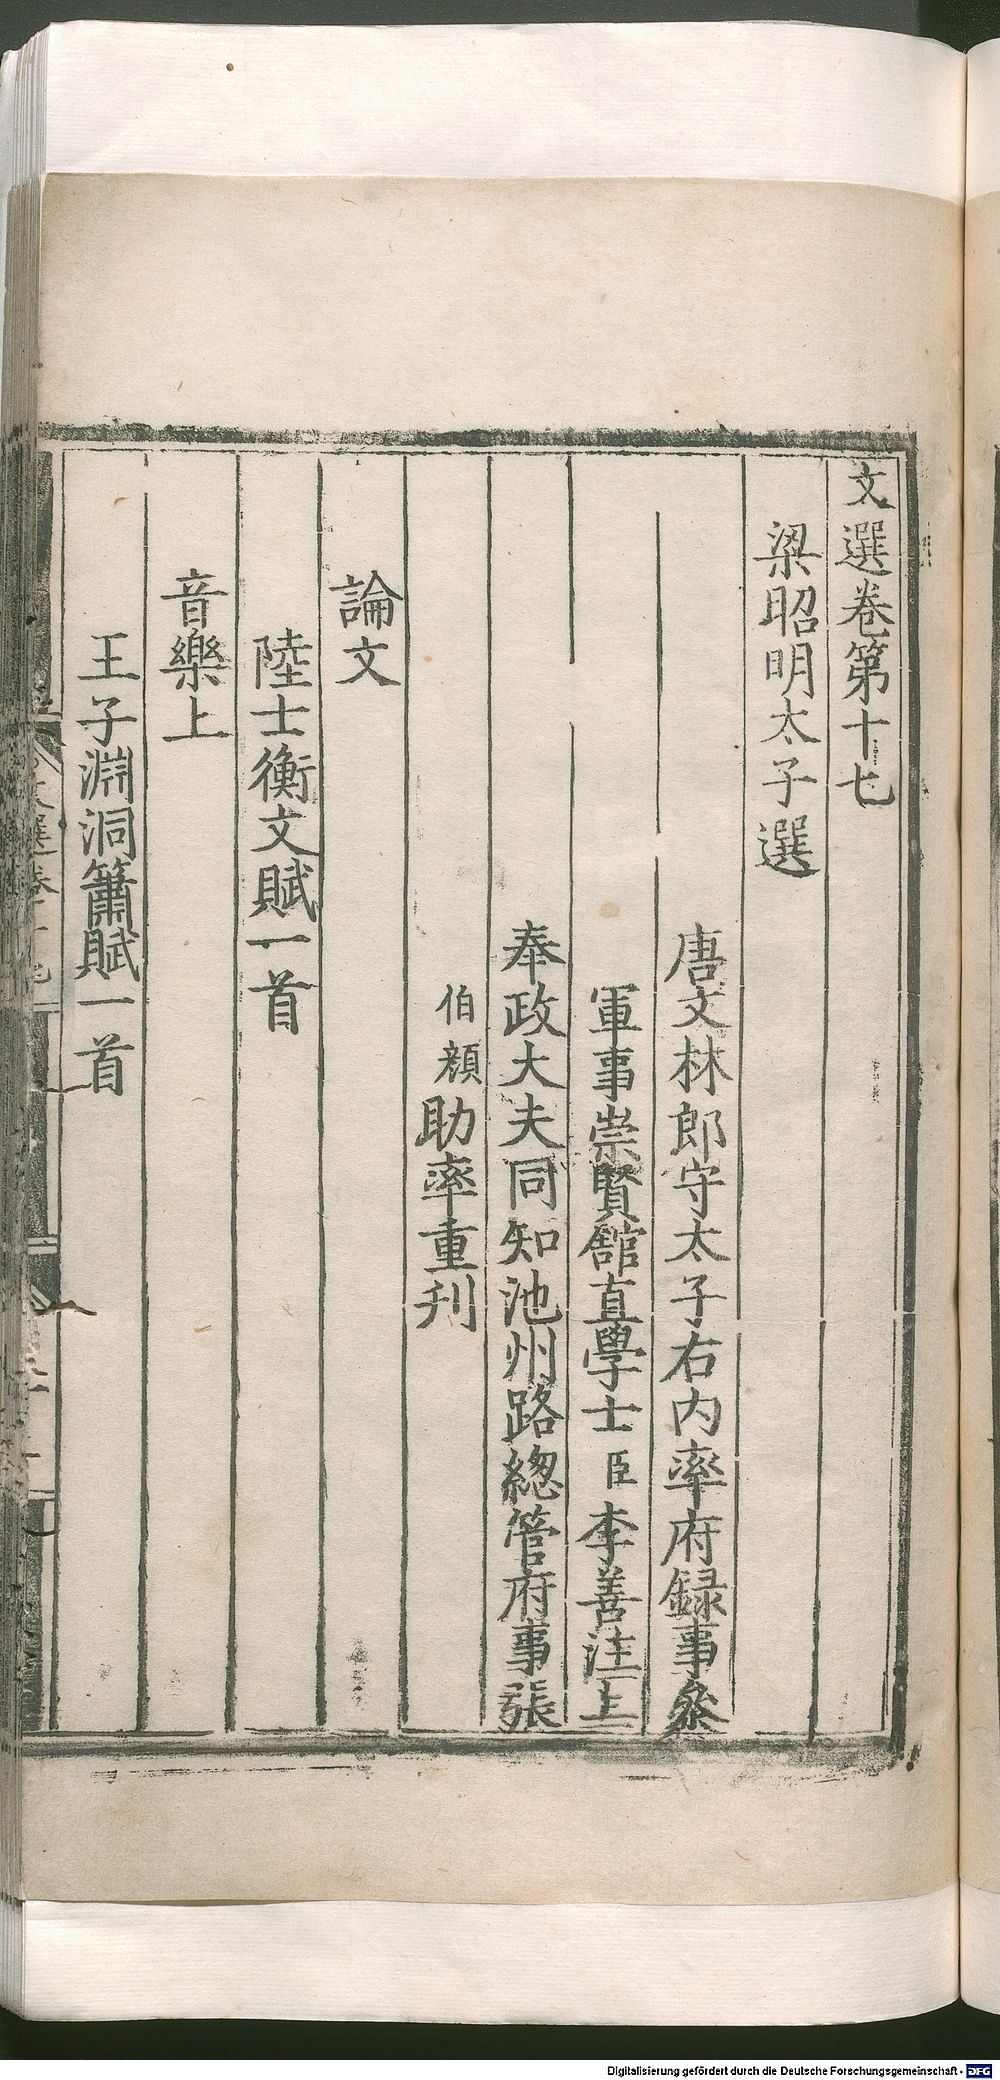 文選卷第十七
梁昭明太子選
唐文林郎守太子右内率府録事叅
軍事崇賢館直學士臣李善注上
奉政大夫同知池州路緫管府事張
伯顔助率重刊
論文
陸士衡文賦一首
音樂上
王子淵洞簫賦一首
文選卷十七
Digitalisierung gefördert durch die Deutsche Forschungsgemeinschaft - DFG